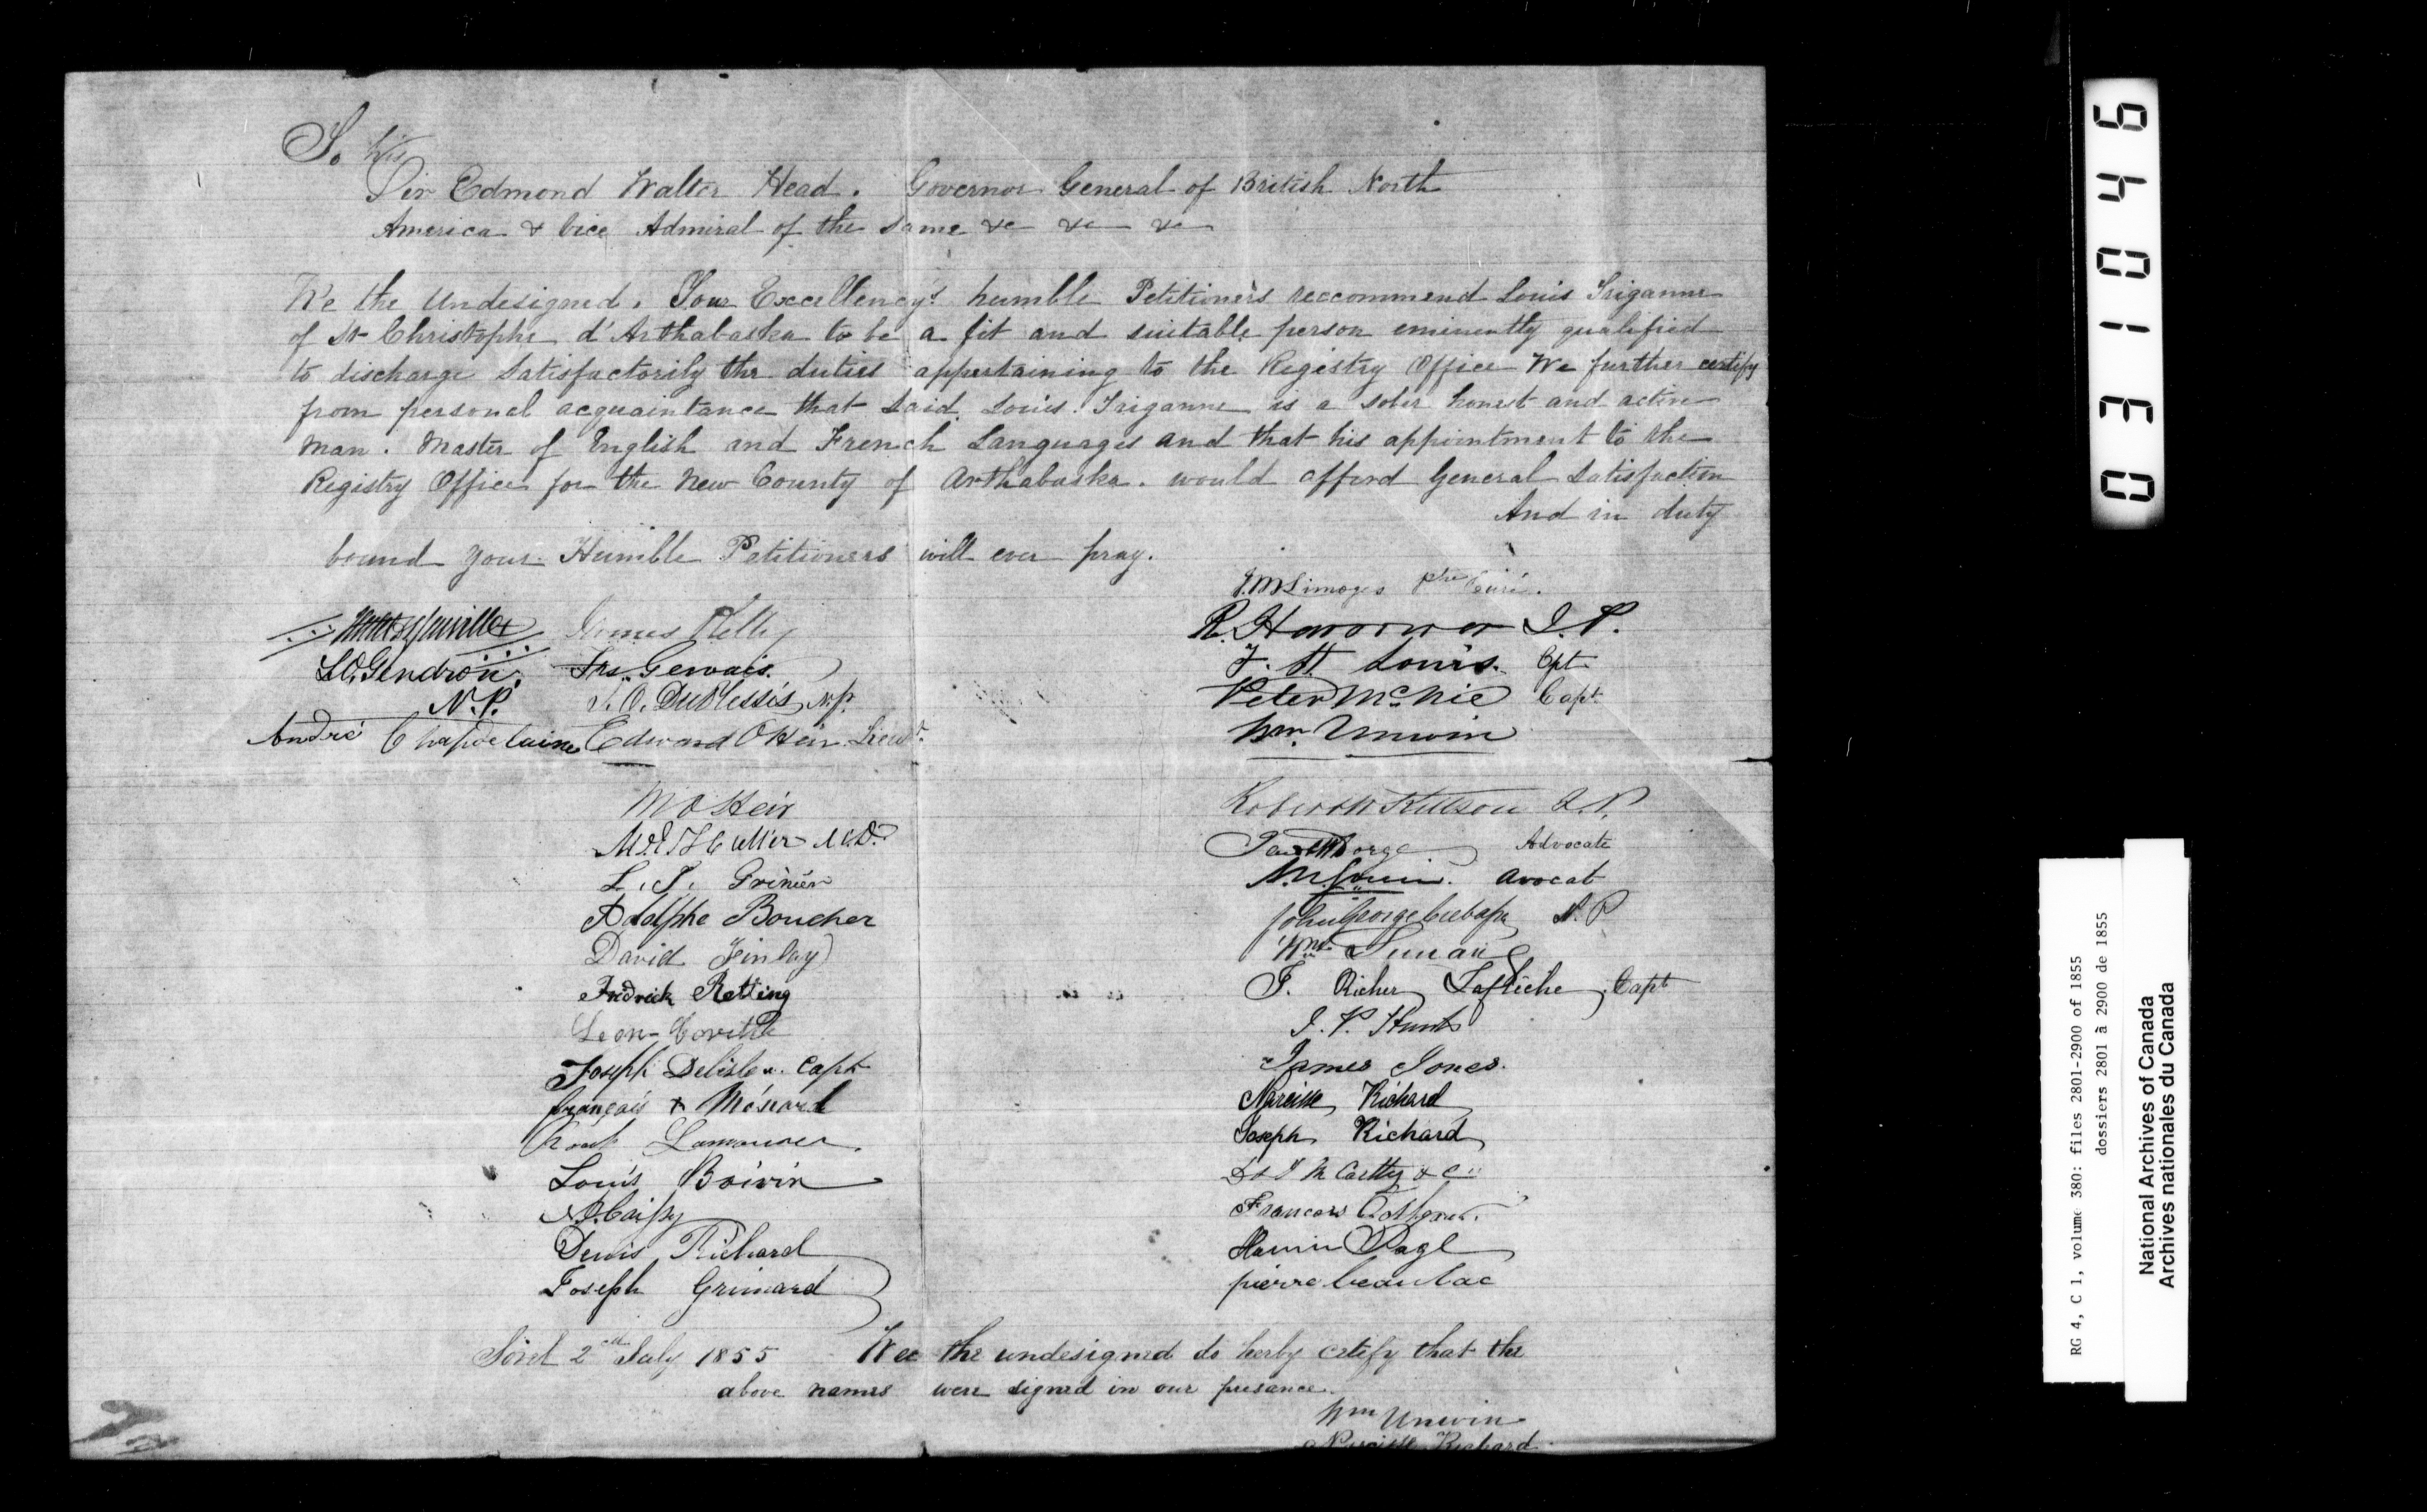 To his
Sir Edmond Walter Head. Governor General of British North
America & Vice Admiral of the Same &c &c &c
We the Undesigned. Your Excellency's humble Petitioners reccommend Louis Triganne
of St Christophe d'Arthabaska to be a fit and suitable person eminently qualified
to discharge Satisfactorily the duties appertaining to the Registry Office We further certify
from personel acquaintance that Said Louis Triganne is a sober honest and active
Man. Master of English and French Languages and that his appointment to the
Registry Office for the New County of Arthabaska. would afford General Satisfaction
And in duty
bound your Humble Petitioners will ever pray.
J.M Limoges ptre Curé.
James Kelly
R. J.P.
L.O. Gendron N.P.
Frs. Gervais
F. St Louis. Cpt
J.O. Duplessis N.P.
Peter McNie Capt
André Chapdelaine
Edward O Heir Lieut.
Wm. Unwin
M O Heir
Robert
M.D.
Advocate
L. T. Grinier
Avocat
Adolphe Boucher
John George N.P
David Finlay
Wm
Fridrick Retting
F. Richer Lafleche, Capt
Leon
J. P. Hunt
Joseph Delisle Capt
James Jones.
françois + Ménard
Narcisse Richard
Joseph Richard
Louis Boivin
D & J McCarthy & Co
Francois
Denis Richard
Page
Joseph Grimard
pierre beaulac
Sorel 2nd July 1855 Wee the undesigned do herby cetify that the
above names were signed in our presance.
Wm Unwin
Narcisse Richard
031046
RG 4, C 1, volume 380: files 2801-2900 of 1855
dossiers 2801 à 2900 de 1855
National Archives of Canada
Archives nationales du Canada